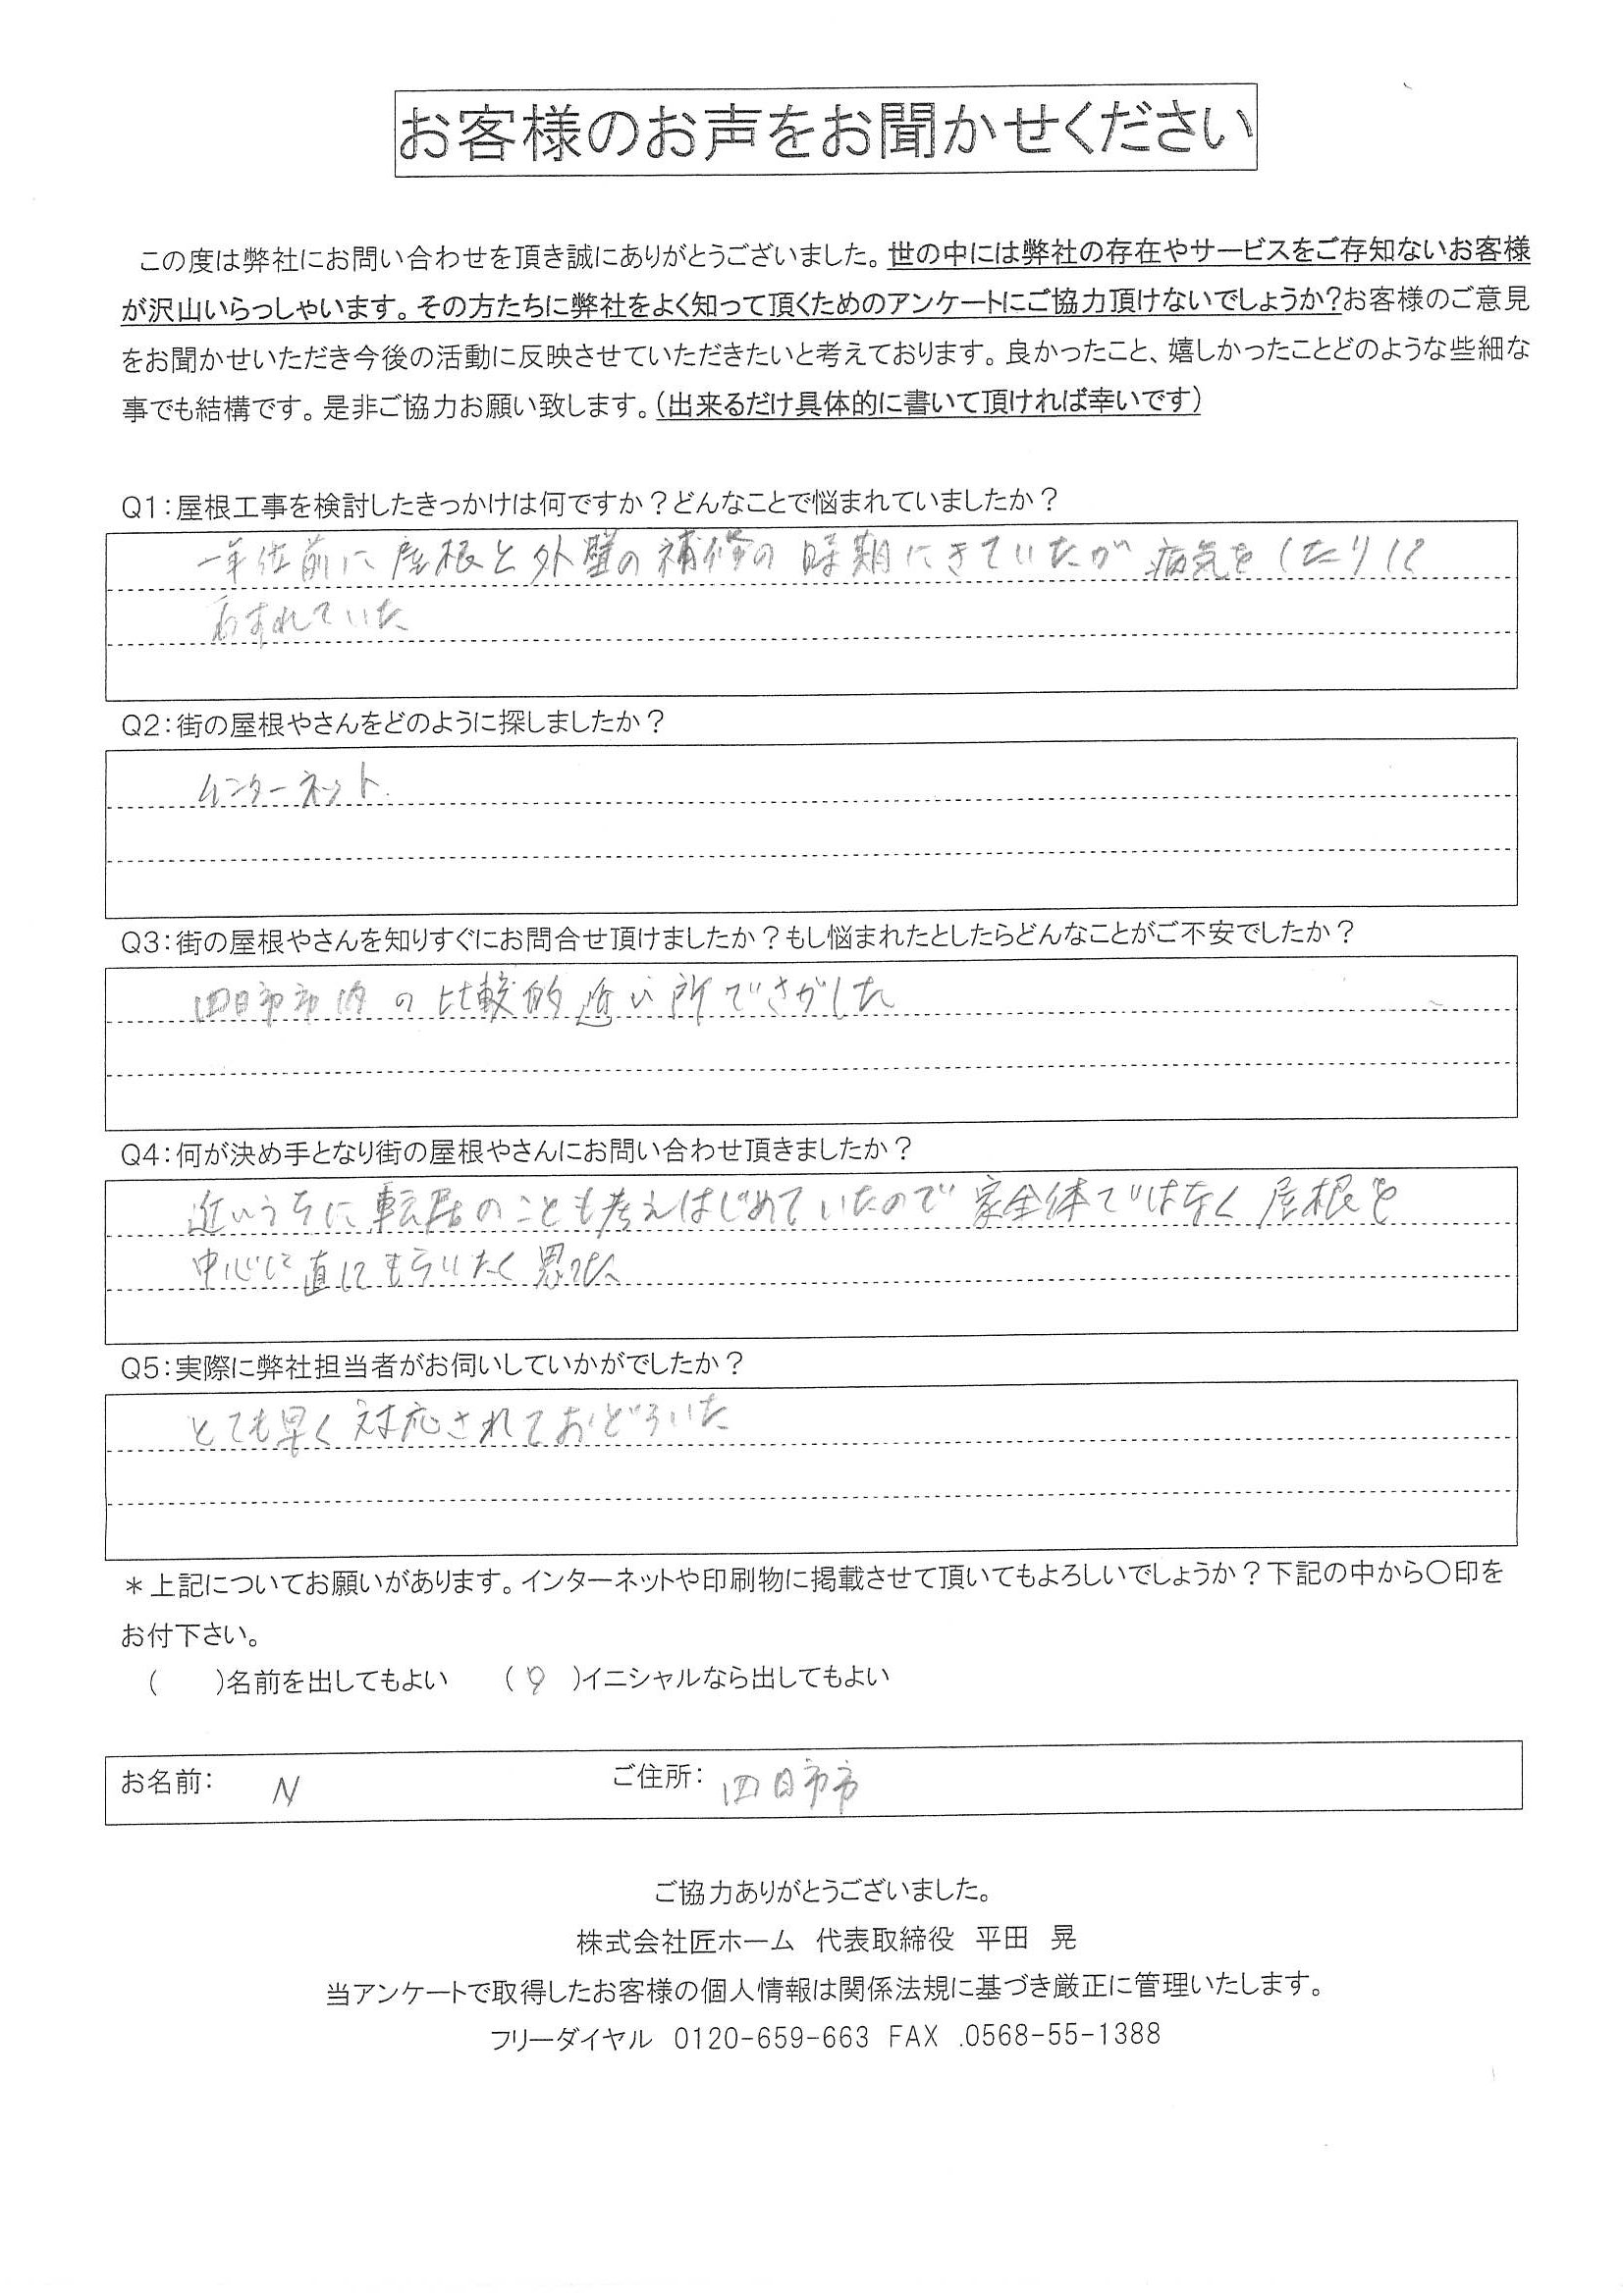 お客様のお声をお聞かせください
この度は弊社にお問い合わせを頂き誠にありがとうございました。世の中には弊社の存在やサービスをご存知ないお客様
が沢山いらっしゃいます。その方たちに弊社をよく知って頂くためのアンケートにご協力頂けないでしょうか?お客様のご意見
をお聞かせいただき今後の活動に反映させていただきたいと考えております。良かったこと、嬉しかったことどのような些細な
事でも結構です。是非ご協力お願い致します。(出来るだけ具体的に書いて頂ければ幸いです)
Q1:屋根工事を検討したきっかけは何ですか?どんなことで悩まれていましたか?
一年位前に屋根と外壁の補修の時期にきていたが病気をしたりして
わすれていた
Q2:街の屋根やさんをどのように探しましたか?
インターネット.
Q3:街の屋根やさんを知りすぐにお問合せ頂けましたか?もし悩まれたとしたらどんなことがご不安でしたか?
四日市市内の比較的近い所でさがした
Q4:何が決め手となり街の屋根やさんにお問い合わせ頂きましたか?
近いうちに転居のことも考えはじめていたので家全体ではなく屋根を
中心に直してもらいたく思った
Q5:実際に弊社担当者がお伺いしていかがでしたか?
とても早く対応されておどろいた
*上記についてお願いがあります。インターネットや印刷物に掲載させて頂いてもよろしいでしょうか?下記の中から○印を
お付下さい。
( )名前を出してもよい (○)イニシャルなら出してもよい
お名前: N ご住所: 四日市市
ご協力ありがとうございました。
株式会社匠ホーム 代表取締役 平田 晃
当アンケートで取得したお客様の個人情報は関係法規に基づき厳正に管理いたします。
フリーダイヤル 0120-659-663 FAX .0568-55-1388